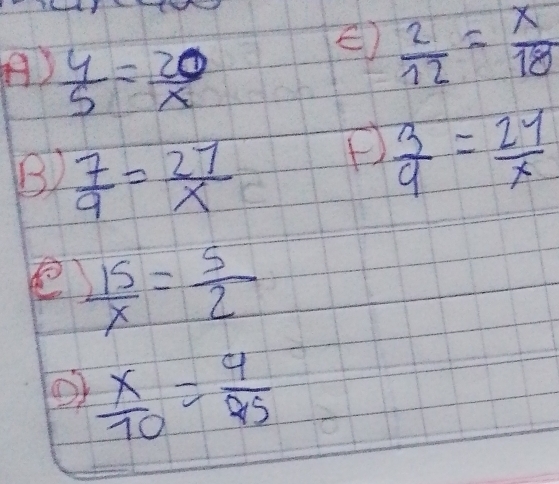 A) 4/5 = 20/x
B) 7/9 = 27/x
C) 15/x = 5/2
D) x/10 = 4/5
E) 2/12 = x/18
F) 3/9 = 24/x